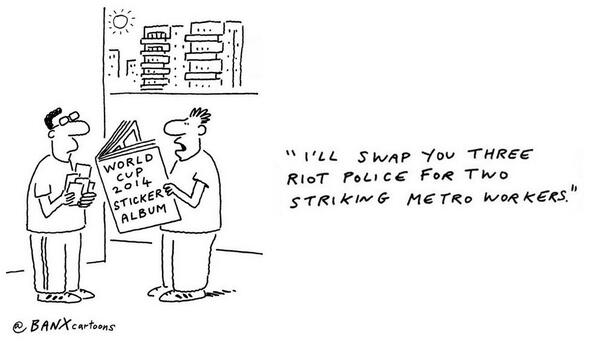 WORLD
CUP
2014
STICKER
ALBUM
"I'LL SWAP YOU THREE
RIOT POLICE FOR TWO
STRIKING METRO WORKERS."
@BANXcartoons